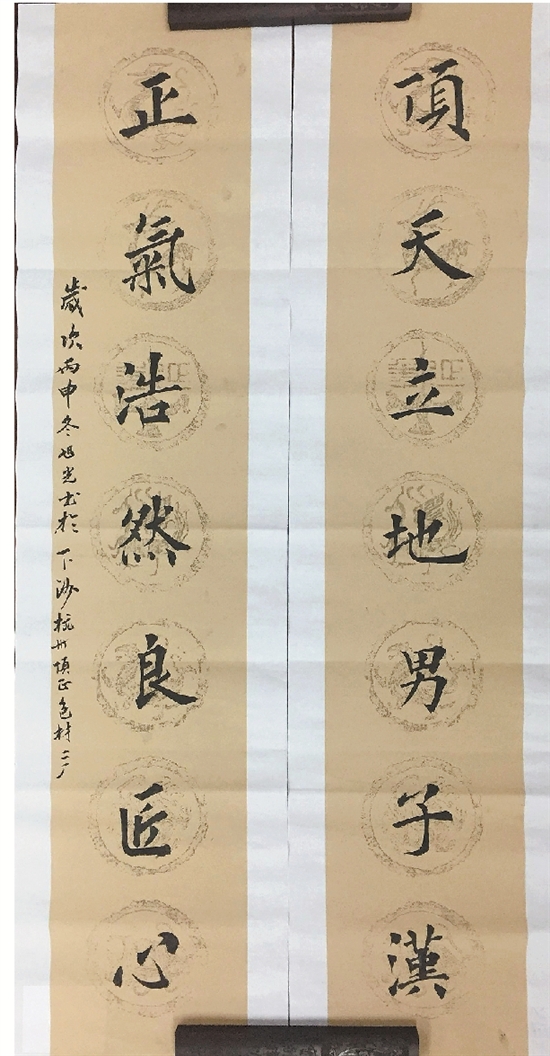 頂天立地男子漢
正氣浩然良匠心
歲次丙申冬旭光书於下沙杭州頂正包材